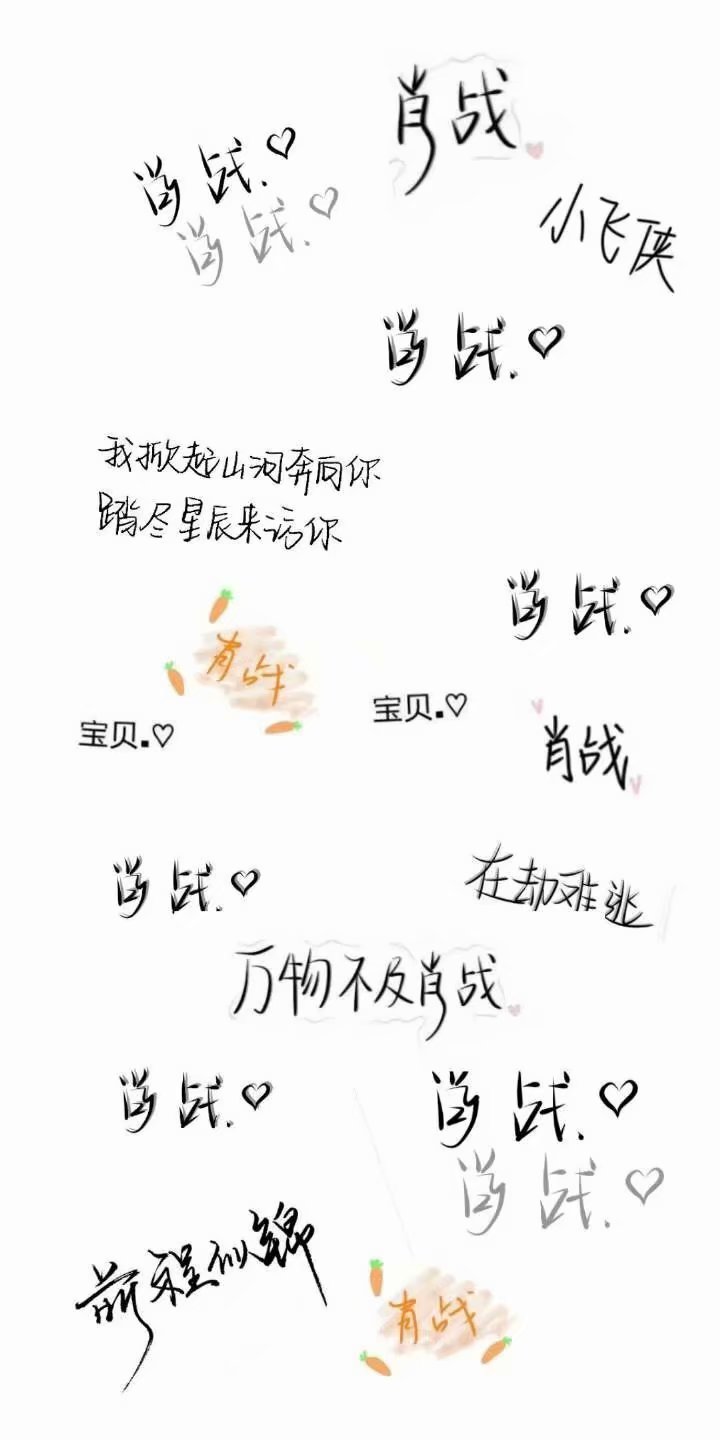 肖战
肖战.♡
肖战.♡
小飞侠
肖战.♡
我掀起山河奔向你
踏尽星辰来访你
肖战.♡
肖战
宝贝.♡
宝贝.♡
肖战
肖战.♡
在劫难逃
万物不及肖战
肖战.♡
肖战.♡
肖战.♡
前程似锦
肖战